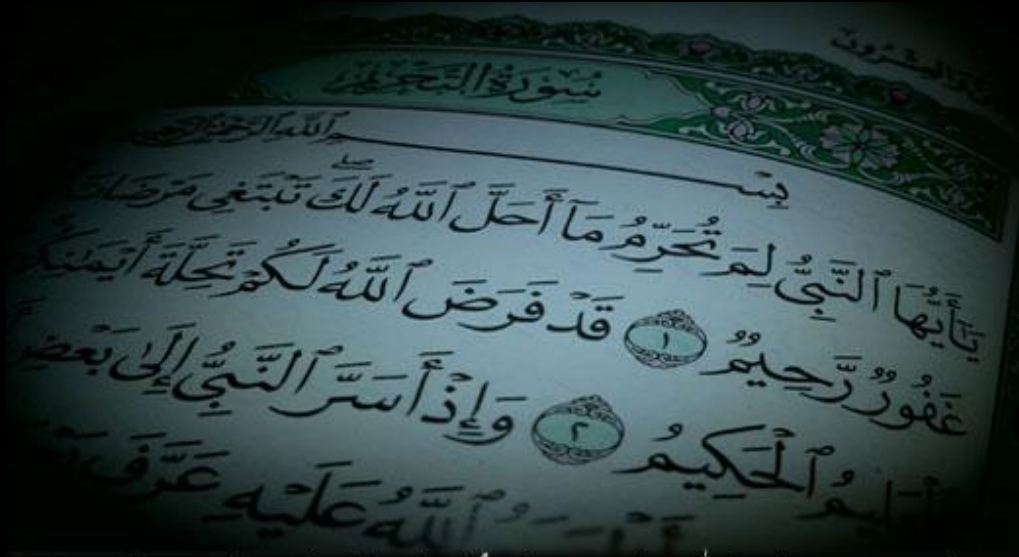 سُورَةُ التَّحْرِيمِ
بِسْمِ ٱللَّهِ ٱلرَّحْمَٰنِ ٱلرَّحِيمِ
يَٰٓأَيُّهَا ٱلنَّبِىُّ لِمَ تُحَرِّمُ مَآ أَحَلَّ ٱللَّهُ لَكَ ۖ تَبْتَغِى مَرْضَاتَ
غَفُورٌ رَّحِيمٌ ١ قَدْ فَرَضَ ٱللَّهُ لَكُمْ تَحِلَّةَ أَيْمَٰنِكُمْ
ٱلْعَلِيمُ ٱلْحَكِيمُ ٢ وَإِذْ أَسَرَّ ٱلنَّبِىُّ إِلَىٰ بَعْضِ
ٱللَّهُ عَلَيْهِ عَرَّفَ